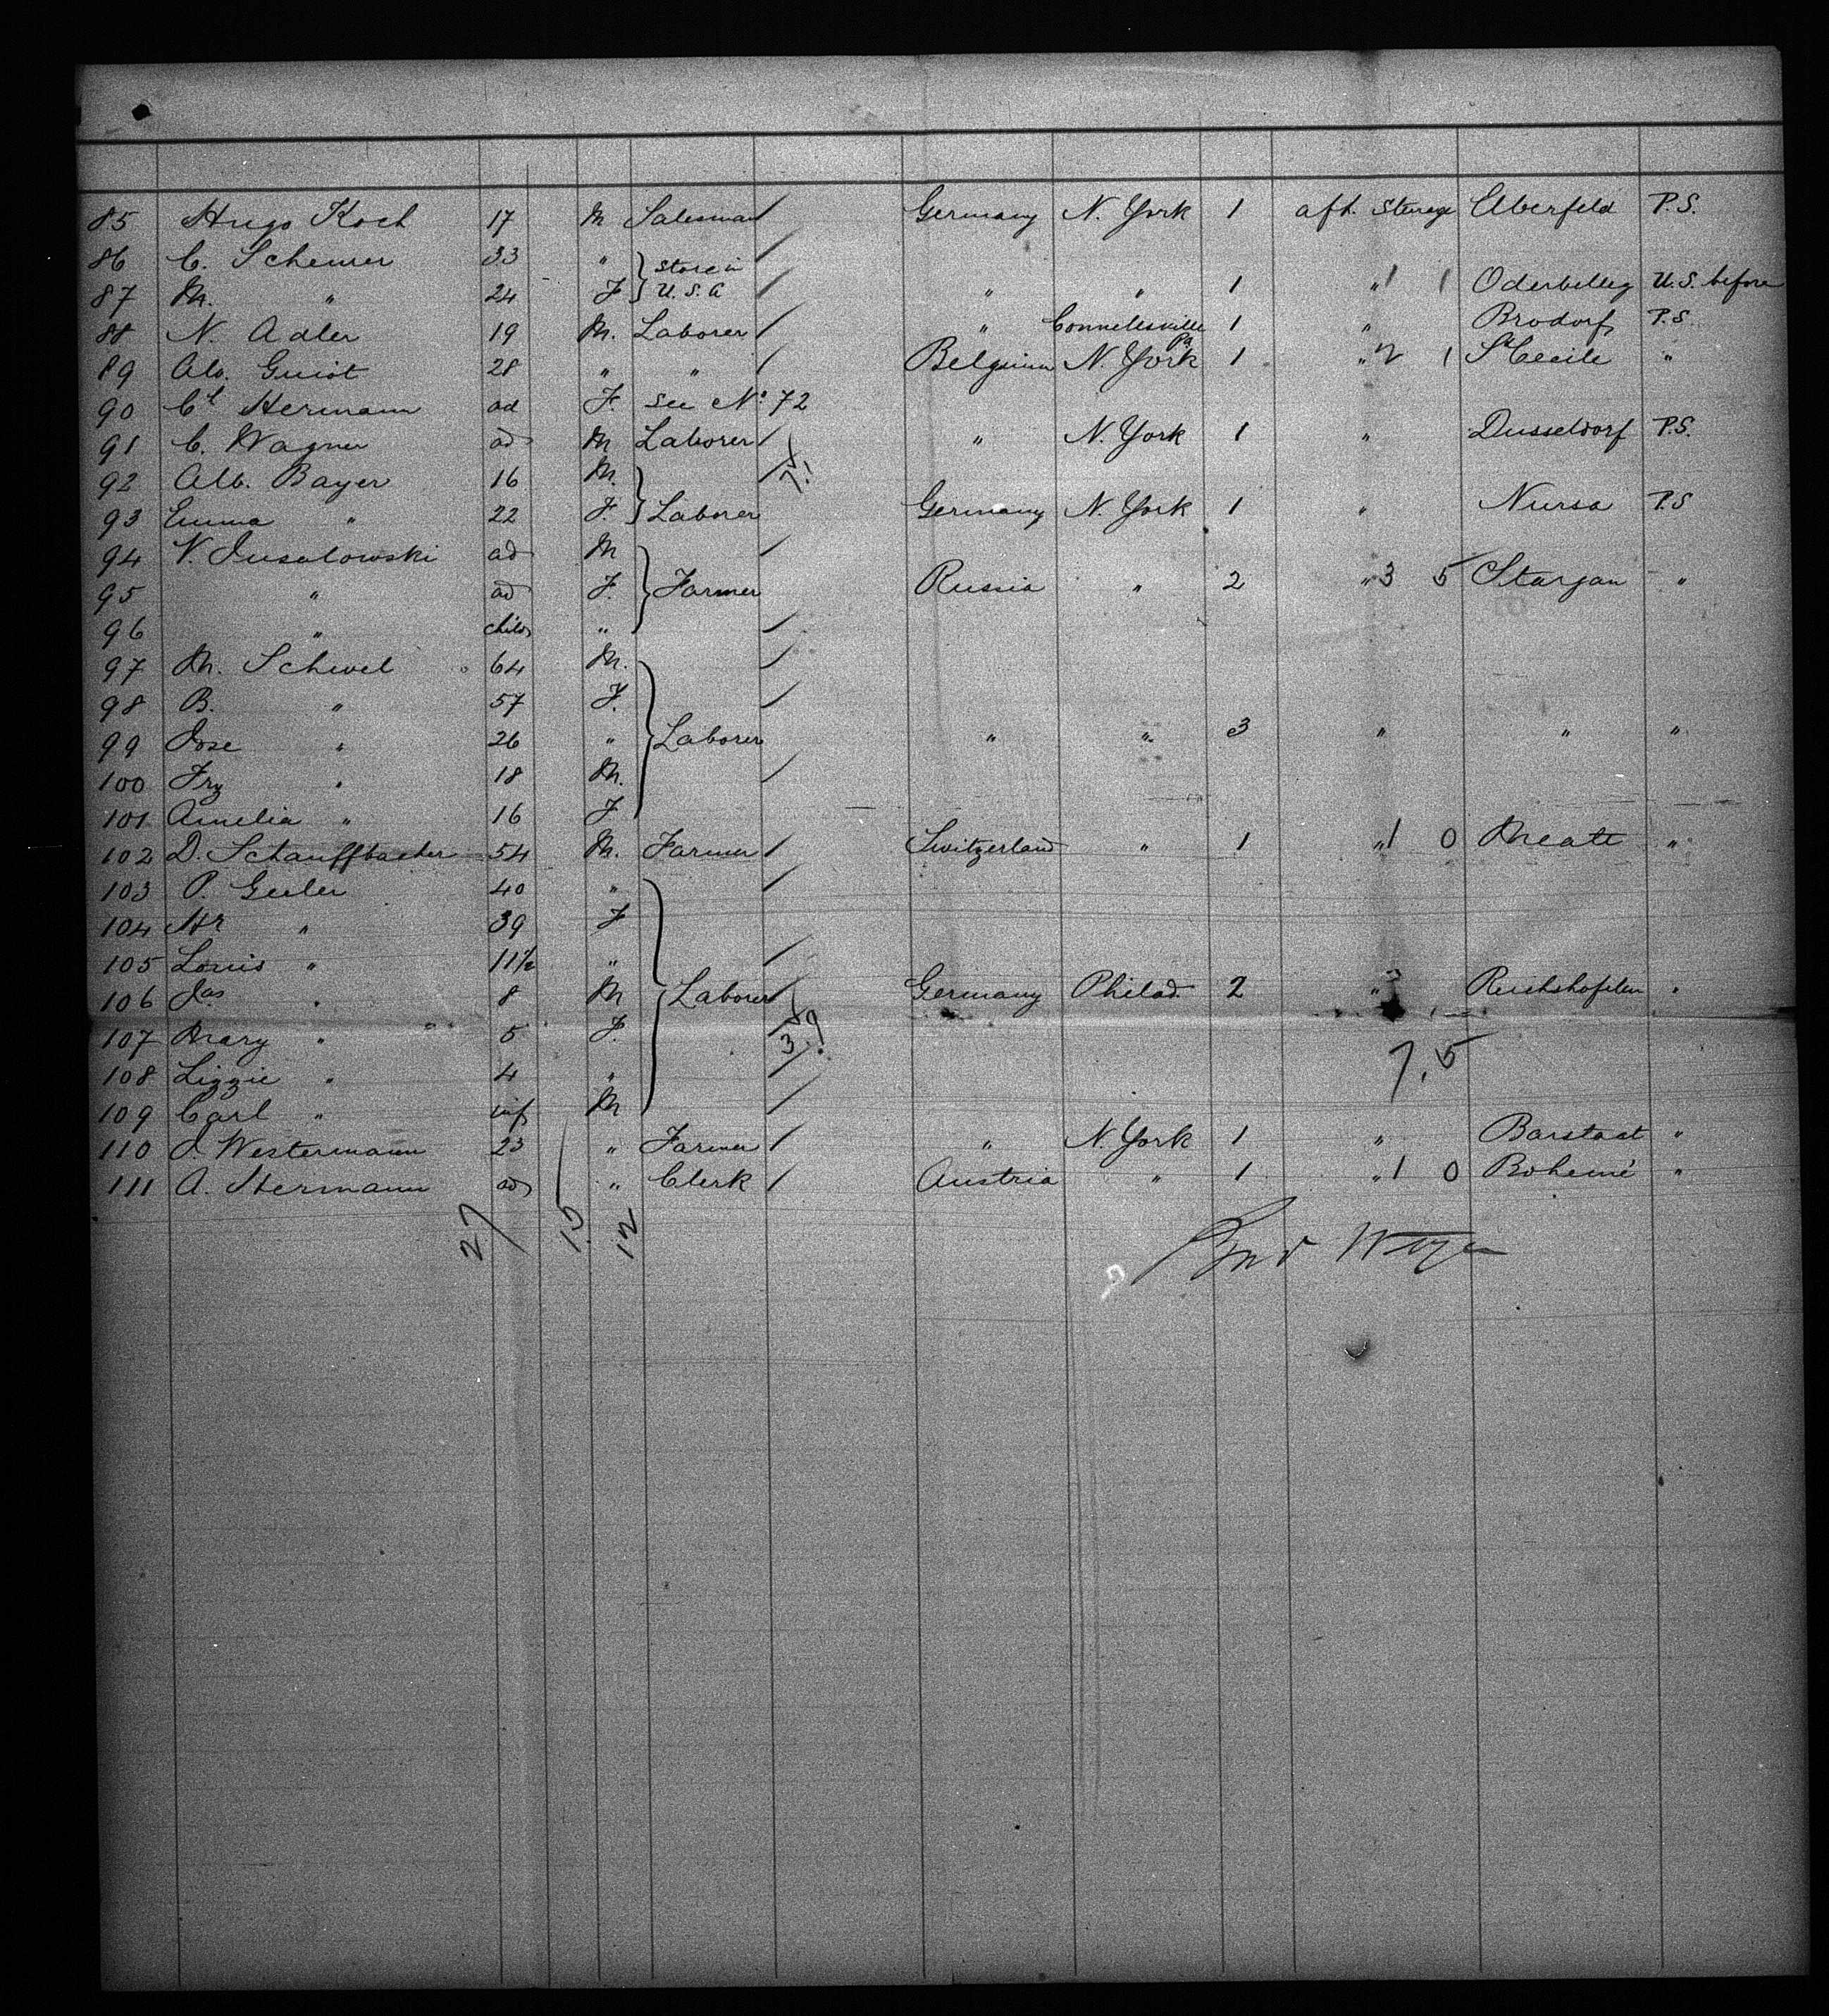 85 Hugo Koch 17 M Salesman / Germany N. York 1 aft. Steerage Elberfeld P.S.
86 C. Scheurer 33 " } Store in /
87 M. " 24 F } U.S.A / " " 1 " 1 1 U.S. before
88 N. Adler 19 M. Laborer / " Connellsville Pa 1 " Brodorf P.S.
89 Alb. Guiot 28 " " / Belgium N. York 1 " 2 1 St Cecile "
90 Ct Hermann ad F. See No 72
91 C. Wagner ad M Laborer / " N. York 1 " Dusseldorf P.S.
92 Alb. Bayer 16 M. /
93 Emma " 22 F. } Laborer Germany N. York 1 " Nursa P.S
94 ad M /
95 " ad F. } Farmer Russia " 2 " 3 5 Stargan "
96 " child " /
97 M. Schevel 64 M. /
98 B. " 57 F. /
99 Jose " 26 " } Laborer " " 3 " " "
100 Frz " 18 M. /
101 Amelia " 16 F
102 D. Schauffbacher 54 M. Farmer / Switzerland " 1 " 1 0 "
103 P. Geeler 40 " /
104 " 39 F
105 Louis " 11½ " /
106 Jas " 8 M } Laborer / Germany Philad. 2 " 3 "
107 Mary " 5 F.
7,5
108 Lizzie " 4 " /
109 Carl " inf M /
110 J. Westermann 23 " Farmer / " N. York 1 " Barstaat "
111 A. Hermann ad " Clerk / Austria " 1 " 1 0 Bohemé "
27 15 12